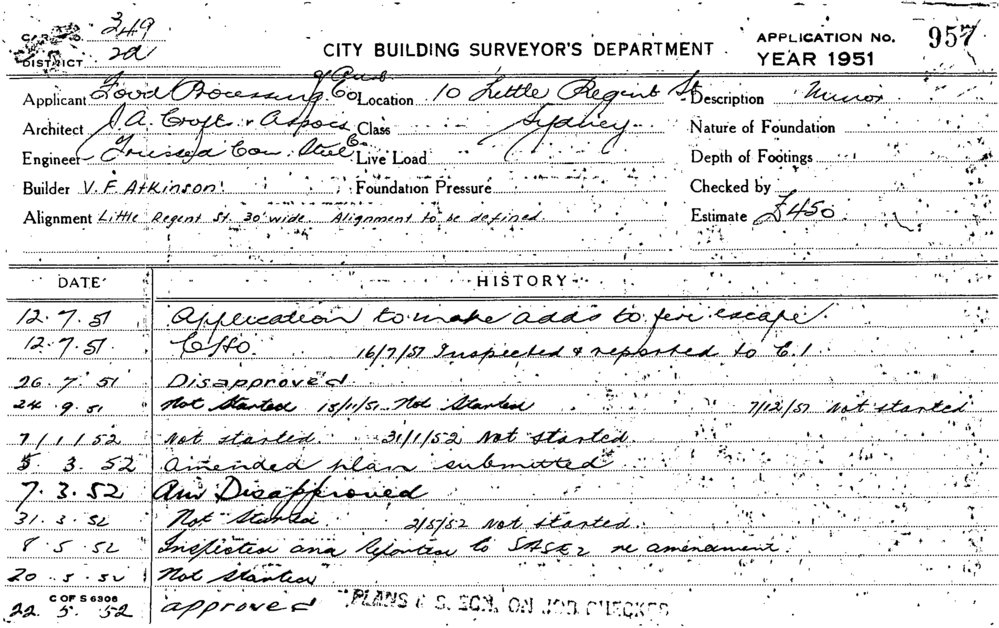 CARD NO. 349
DISTRICT 2A
CITY BUILDING SURVEYOR'S DEPARTMENT
APPLICATION No. 957
YEAR 1951
Applicant Food Processing Co of Aust Location 10 Little Regent St Description Minor
Architect J.A. Croft & Assocs Class Sydney Nature of Foundation
Engineer Trussed Con. Steel Co Live Load Depth of Footings
Builder V. F. Atkinson Foundation Pressure Checked by
Alignment Little Regent St. 30' wide. Alignment to be defined Estimate £450
DATE HISTORY
12.7.51 Application to make adds to fire escape.
12.7.51 16/7/51 Inspected & reported to C.I
26.7.51 Disapproved
24.9.51 Not Started 15/11/51 Not Started 7/12/51 Not started
7/1/52 Not started. 31/1/52 Not started.
5 3.52 Amended plan submitted
7.3.52 Am Disapproved
31.3.52 Not Started 2/5/52 Not started.
8.5.52 Inspected and Reported to re amendment.
20.5.52 Not Started
C OF S 6306
22.5.52 approved PLANS & S. ON JOB CHECKED